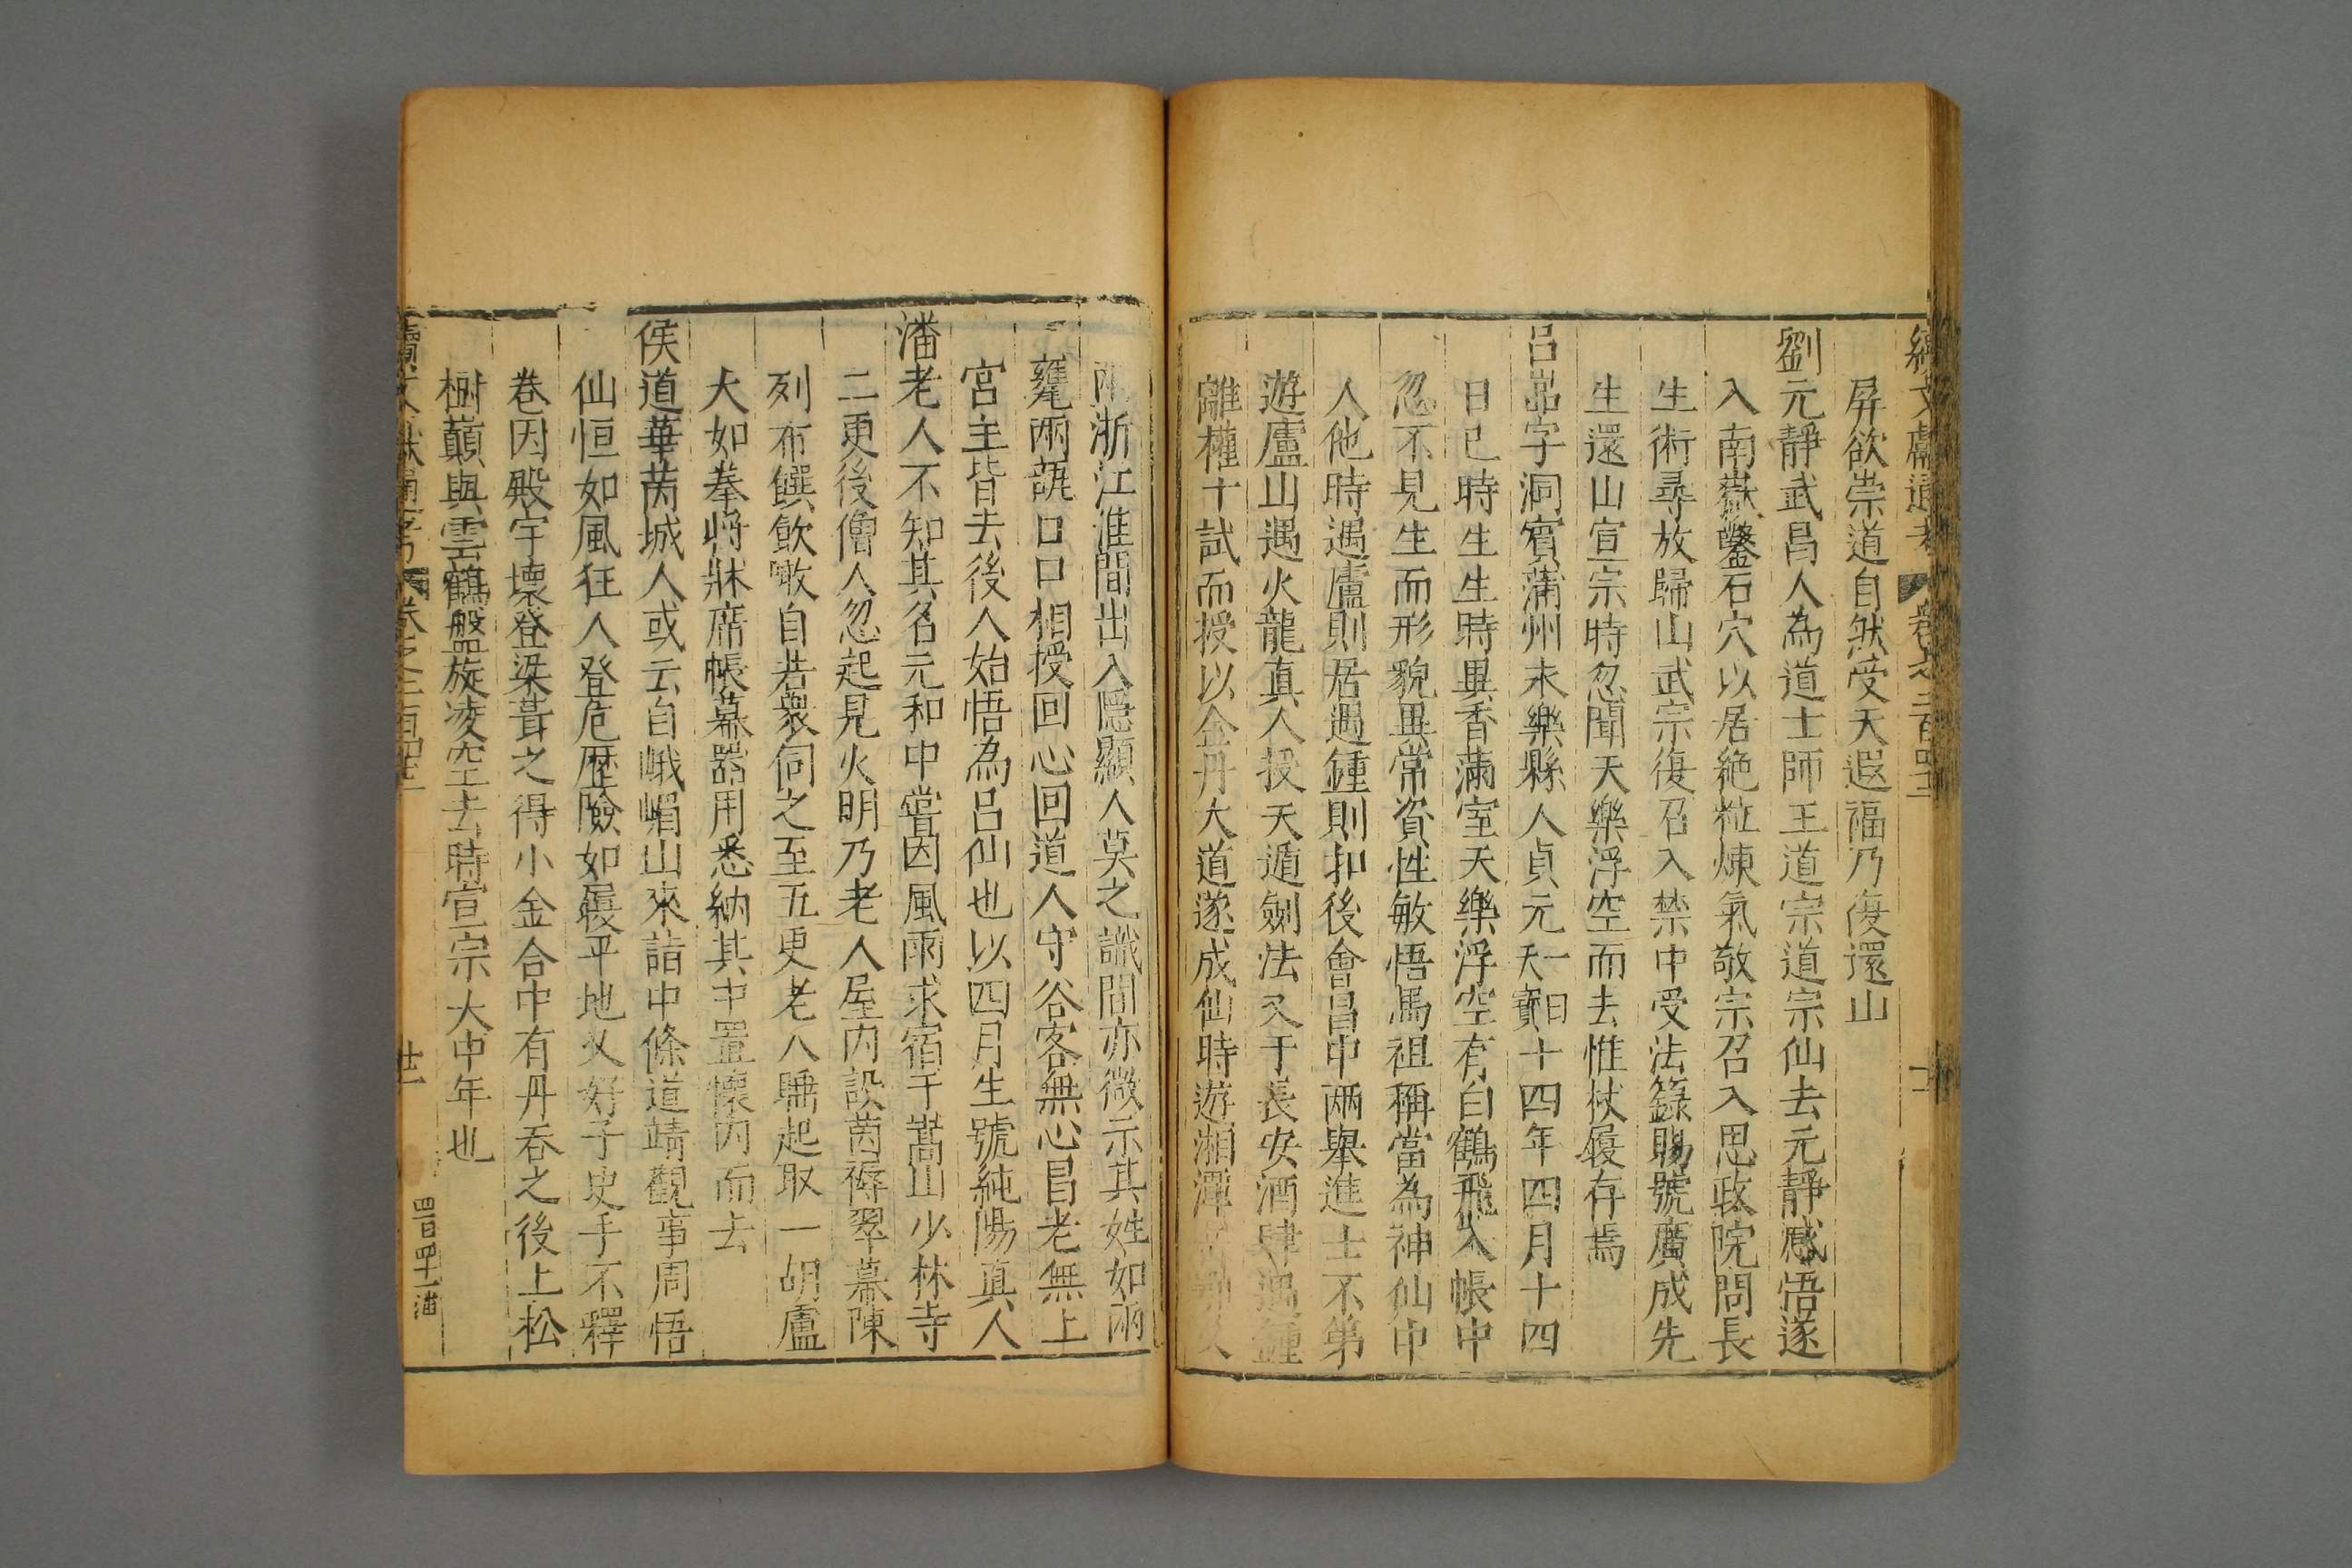 續文獻通考 卷之二百四十二
屏欲崇道自然受天遐福乃復還山
劉元靜武昌人為道士師王道宗道宗仙去元靜感悟遂
入南嶽鑿石穴以居絶粒煉氣敬宗召入思政院問長
生術尋放歸山武宗復召入禁中受法籙賜號廣成先
生還山宣宗時忽聞天樂浮空而去惟杖履存焉
呂嵓字洞賓蒲州永樂縣人貞元一曰天寶十四年四月十四
日巳時生生時異香滿室天樂浮空有白鶴飛入帳中
忽不見生而形貌異常資性敏悟馬祖稱當為神仙中
人他時遇廬則居遇鍾則扣後會昌中兩舉進士不第
遊廬山遇火龍真人授天遁劍法又于長安酒肆遇鍾
離權十試而授以金丹大道遂成仙時遊湘潭
浙江淮間出入隱顯人莫之識問亦微示其姓如兩
甕兩諕口口相授回心回道人守谷客無心昌老無上
宮主皆去後人始悟為呂仙也以四月生號純陽真人
潘老人不知其名元和中嘗因風雨求宿于嵩山少林寺
二更後僧人忽起見火明乃老人屋內設茵褥翠幕陳
列布饌飲噉自若衆伺之至五更老人睡起取一胡盧
大如拳將牀席帳幕器用悉納其中置懷內而去
侯道華芮城人或云自峨嵋山來詣中條道靖觀事周悟
仙恒如風狂人登危歷險如履平地又好子史手不釋
卷因殿宇壞登梁葺之得小金合中有丹吞之後上松
樹巔與雲鶴盤旋凌空去時宣宗大中年也
續文獻通考 卷之二百四十二 廿一